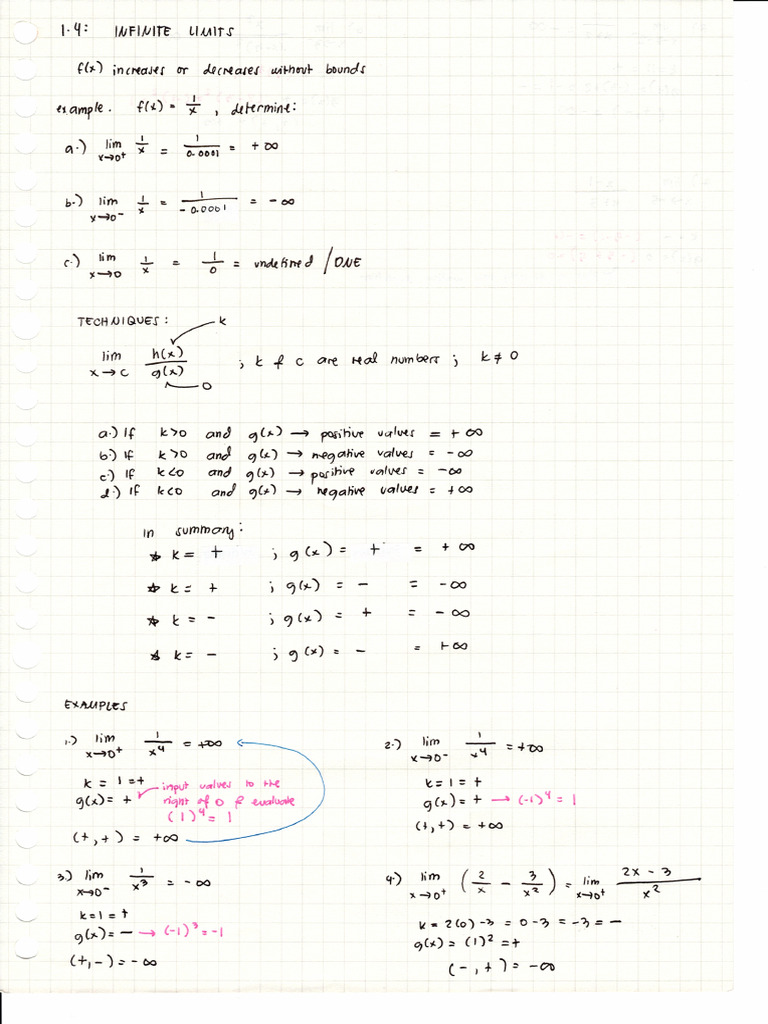 1.4: INFINITE LIMITS
f(x) increases or decreases without bounds
example. f(x) = 1/x , determine:
a.) lim x→0⁺ 1/x = 1/0.0001 = +∞
b.) lim x→0⁻ 1/x = 1/-0.0001 = -∞
c.) lim x→0 1/x = 1/0 = undefined / DNE
TECHNIQUES: k
lim x→c h(x)/g(x) ; k & c are real numbers ; k ≠ 0
0
a.) If k>0 and g(x) → positive values = +∞
b.) If k>0 and g(x) → negative values = -∞
c.) If k<0 and g(x) → positive values = -∞
d.) If k<0 and g(x) → negative values = +∞
in summary:
* k = + ; g(x) = + = +∞
* k = + ; g(x) = - = -∞
* k = - ; g(x) = + = -∞
* k = - ; g(x) = - = +∞
EXAMPLES
1.) lim x→0⁺ 1/x⁴ = +∞
k = 1 = +
g(x) = + input values to the right of 0 & evaluate
(1)⁴ = 1
(+,+) = +∞
2.) lim x→0⁻ 1/x⁴ = +∞
k = 1 = +
g(x) = + → (-1)⁴ = 1
(+,+) = +∞
3.) lim x→0⁻ 1/x³ = -∞
k = 1 = +
g(x) = - → (-1)³ = -1
(+,-) = -∞
4.) lim x→0⁺ (2/x - 3/x²) = lim x→0⁺ 2x - 3/x²
k = 2(0) -3 = 0-3 = -3 = -
g(x) = (1)² = +
(-,+) = -∞